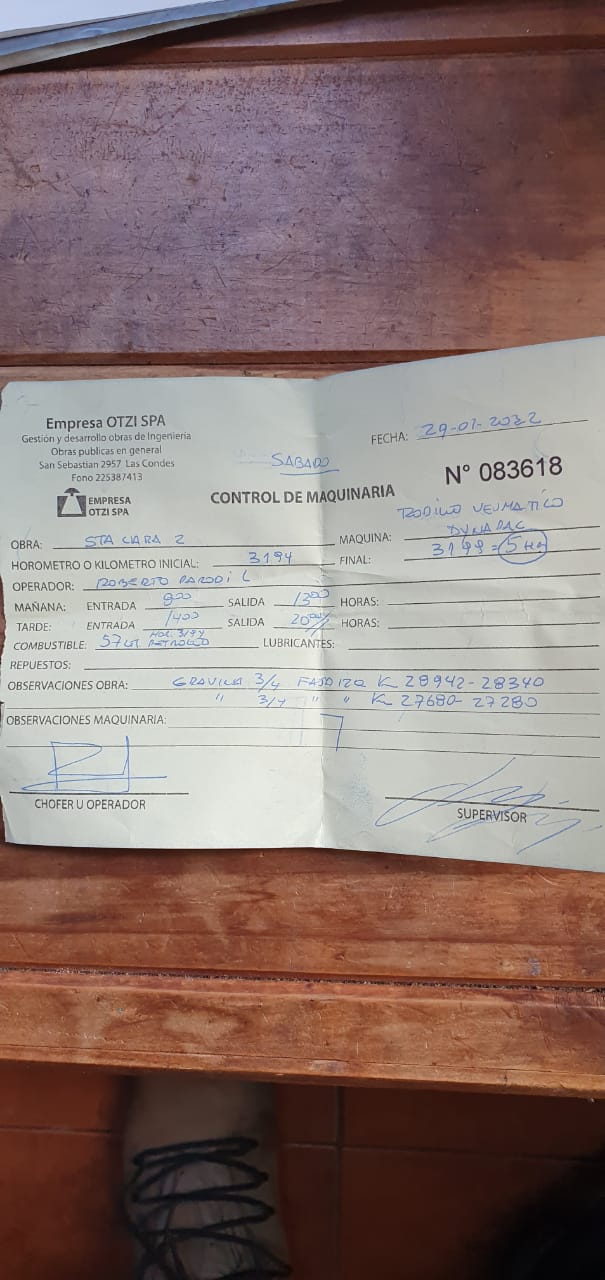 Empresa OTZI SPA
Gestión y desarrollo obras de Ingenieria
Obras publicas en general
San Sebastian 2957 Las Condes
Fono 225387413
EMPRESA
OTZI SPA
FECHA: 29-01-2022
SABADO
N° 083618
CONTROL DE MAQUINARIA
RODILLO NEUMATICO
DYNAPAC
OBRA: STA CLARA 2 MAQUINA:
HOROMETRO O KILOMETRO INICIAL: 3194 FINAL: 3199 = 5 HR
OPERADOR: ROBERTO PARODI L
MAÑANA: ENTRADA 800 SALIDA 1300 HORAS:
TARDE: ENTRADA 1400 SALIDA 20 HORAS:
HOR. 3194
COMBUSTIBLE: 57 LT. PETROLEO LUBRICANTES:
REPUESTOS:
OBSERVACIONES OBRA: GRAVILLA 3/4 K 28942-28340
" 3/4 " " K 27680-27280
OBSERVACIONES MAQUINARIA:
CHOFER U OPERADOR
SUPERVISOR